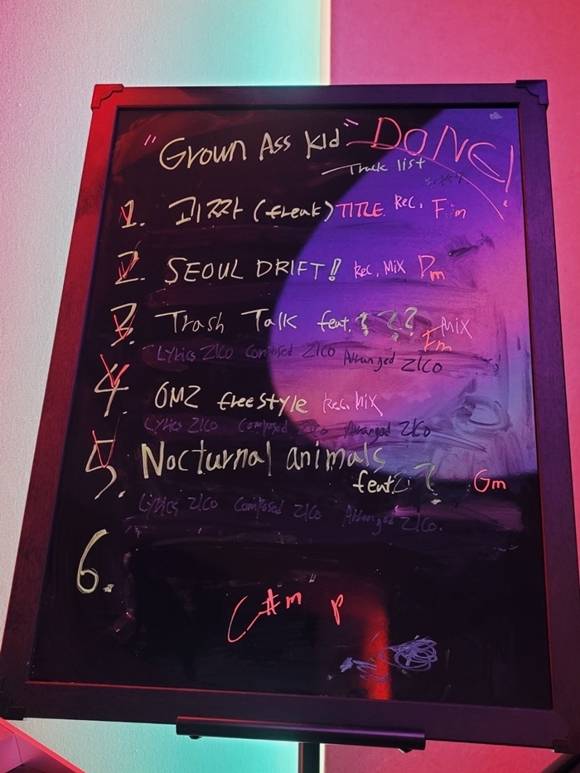 "Grown Ass Kid" DONE!
Track list
1. 괴짜 (freak) TITLE Rec, Fm
2. SEOUL DRIFT! Rec, Mix Dm
3. Trash Talk feat. ? ? ? Mix Fm
Lyrics ZICO Composed ZICO Arranged ZICO
4. OMZ freestyle Rec, Mix
Lyrics ZICO Composed ZICO Arranged ZICO
5. Nocturnal animals
feat. ? Gm
Lyrics ZICO Composed ZICO Arranged ZICO.
6.
C#m P